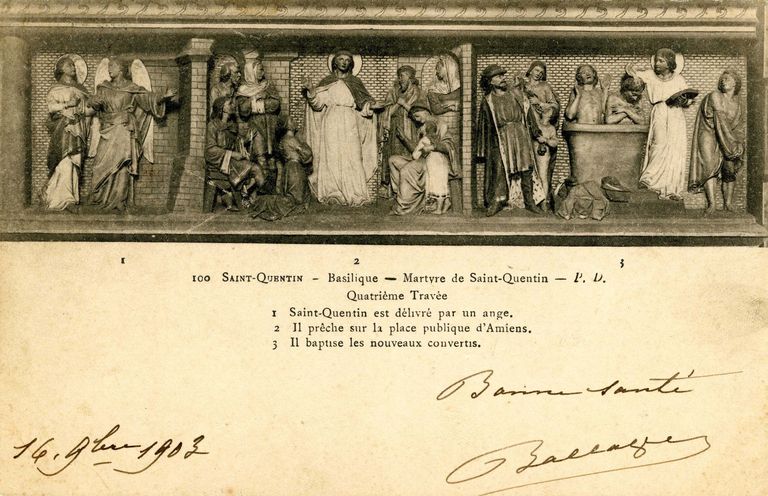 1 2 3
100 SAINT-QUENTIN – Basilique — Martyre de Saint-Quentin — P. D.
Quatrième Travée
1 Saint-Quentin est délivré par un ange.
2 Il prêche sur la place publique d'Amiens.
3 Il baptise les nouveaux convertis.
Bonne santé
16. 9bre 1903